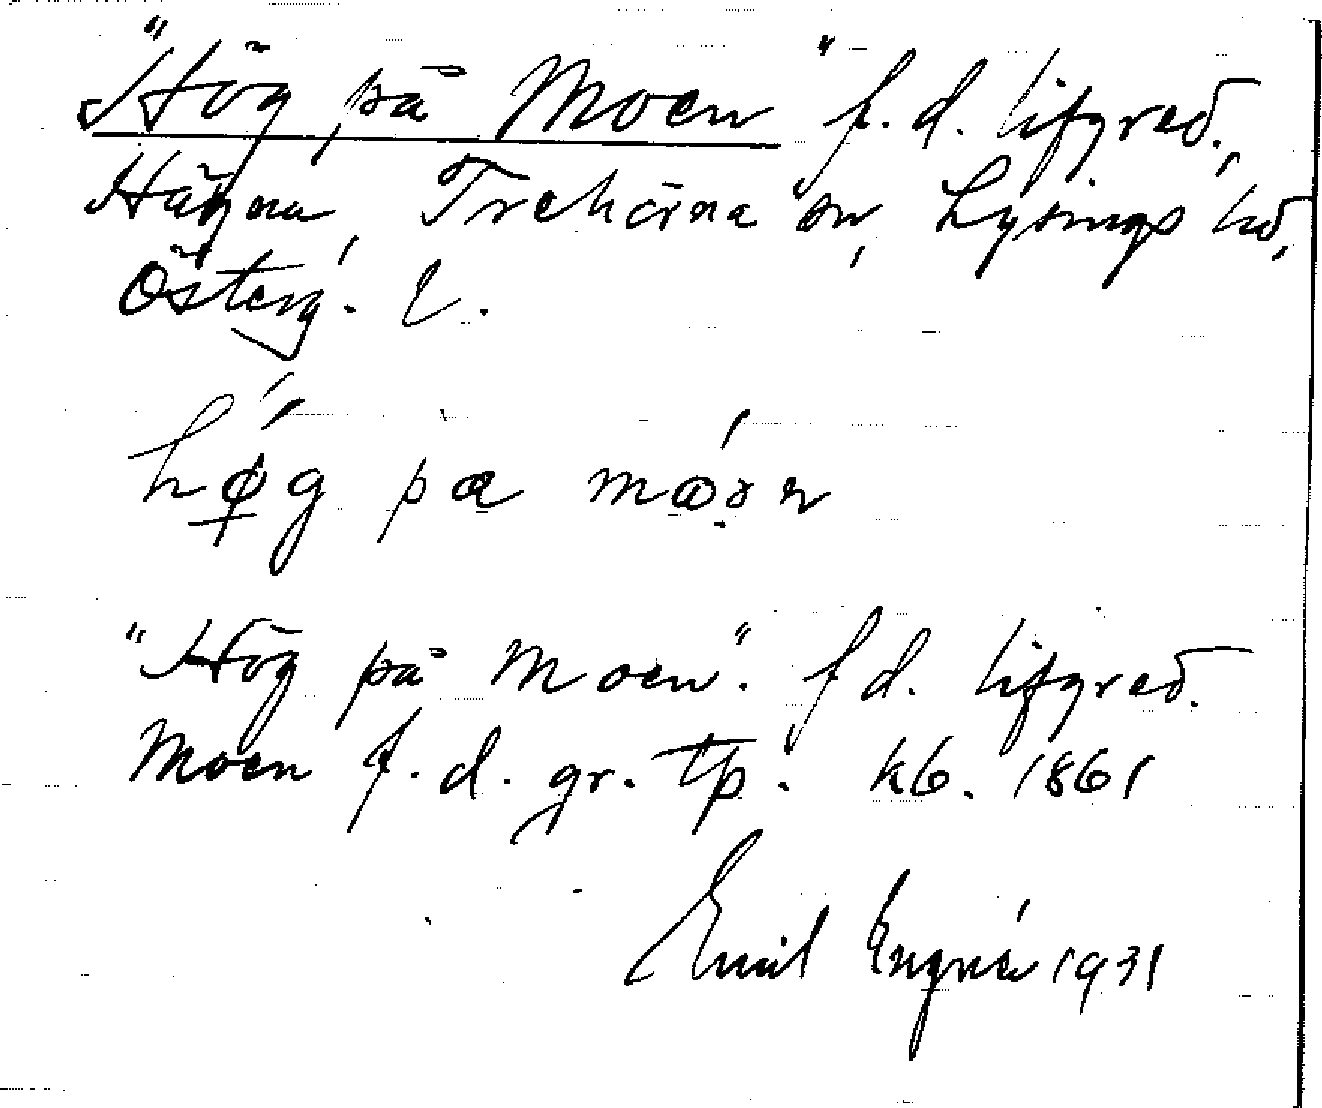 "Hög på Moen" f.d. lifgred.,
Hägna, Trehörna sn, Lysings hd,
Österg. l.
hø̨g pa
"Hög på Moen". f d. lifgred.
Moen f.d. gr. tp. kb. 1861
Emil 1931